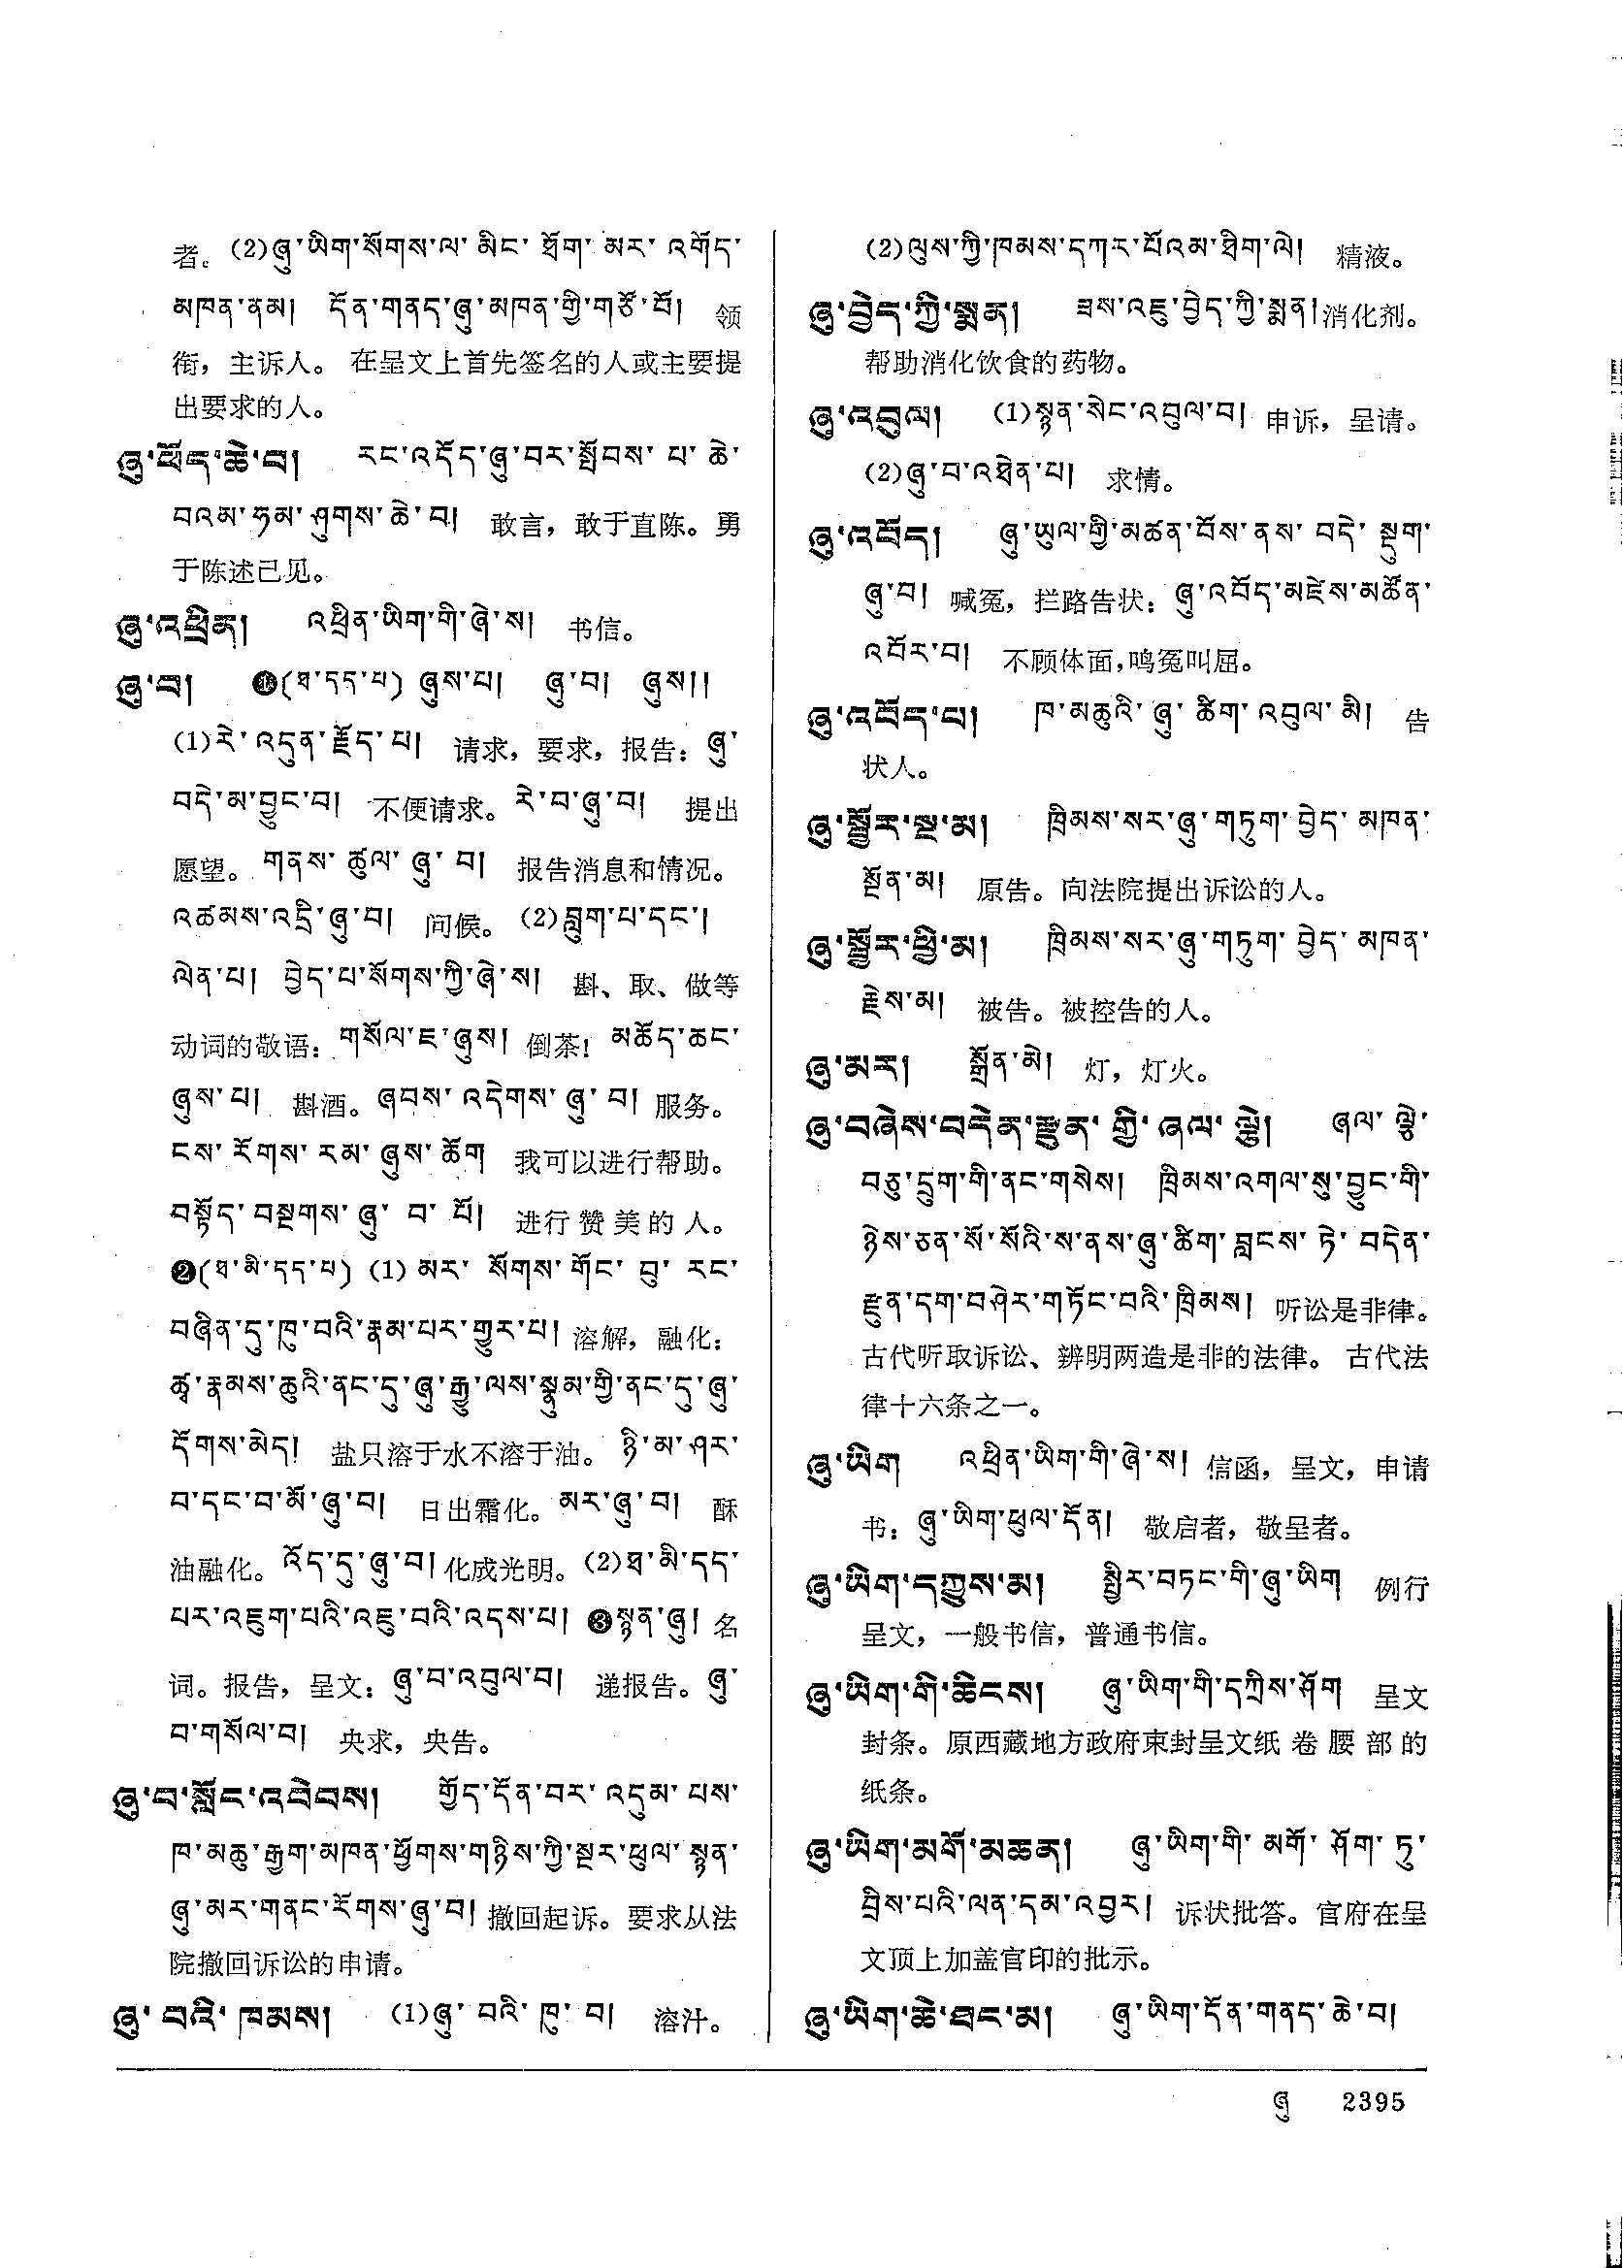 者。(2)ཞུ་ཡིག་སོགས་ལ་ མིང་ ཐོག་ མར་ འགོད་
མཁན་ནམ། དོན་གནད་ཞུ་མཁན་གྱི་གཙོ་བོ། 领
衔，主诉人。 在呈文上首先签名的人或主要提
出要求的人。
ཞུ་ཕོད་ཆེ་བ། རང་འདོད་ཞུ་བར་སྤོབས་ པ་ ཆེ་
བའམ་ཧམ་ཤུགས་ཆེ་བ། 敢言，敢于直陈。勇
于陈述已见。
ཞུ་འཕྲིན། འཕྲིན་ཡིག་གི་ཞེ་ས། 书信。
ཞུ་བ། ❶(ཐ་དད་པ) ཞུས་པ། ཞུ་བ། ཞུས།།
(1)རེ་འདུན་རྗོད་པ། 请求，要求，报告：ཞུ་
བདེ་མ་བྱུང་བ། 不便请求。རེ་བ་ཞུ་བ། 提出
愿望。གནས་ ཚུལ་ ཞུ་ བ། 报告消息和情况。
འཚམས་འདྲི་ཞུ་བ། 问候。(2)བླུག་པ་དང་།
ལེན་པ། བྱེད་པ་སོགས་ཀྱི་ཞེ་ས། 斟、取、做等
动词的敬语：གསོལ་ཇ་ཞུས། 倒茶！མཆོད་ཆང་
ཞུས་པ། 斟酒。ཞབས་ འདེགས་ ཞུ་ བ། 服务。
ངས་ རོགས་ རམ་ ཞུས་ ཆོག 我可以进行帮助。
བསྟོད་ བསྔགས་ ཞུ་ བ་ པོ། 进行赞美的人。
❷(ཐ་མི་དད་པ) (1) མར་ སོགས་ གོང་ བུ་ རང་
བཞིན་དུ་ཁུ་བའི་རྣམ་པར་གྱུར་པ། 溶解，融化：
ཚྭ་རྣམས་ཆུའི་ནང་དུ་ཞུ་རྒྱུ་ལས་སྣུམ་གྱི་ནང་དུ་ཞུ་
དོགས་མེད། 盐只溶于水不溶于油。ཉི་མ་ཤར་
བ་དང་བ་མོ་ཞུ་བ། 日出霜化。མར་ཞུ་བ། 酥
油融化。འོད་དུ་ཞུ་བ། 化成光明。(2)ཐ་མི་དད་
པར་འཇུག་པའི་འཇུ་བའི་འདས་པ། ❸སྙན་ཞུ། 名
词。报告，呈文：ཞུ་བ་འབུལ་བ། 递报告。ཞུ་
བ་གསོལ་བ། 央求，央告。
ཞུ་བ་སློང་འབེབས། གྱོད་དོན་བར་ འདུམ་ པས་
ཁ་མཆུ་རྒྱག་མཁན་ཕྱོགས་གཉིས་ཀྱི་སྔར་ཕུལ་ སྙན་
ཞུ་མར་གནང་རོགས་ཞུ་བ། 撤回起诉。要求从法
院撤回诉讼的申请。
ཞུ་ བའི་ ཁམས། (1)ཞུ་ བའི་ ཁུ་ བ། 溶汁。
(2)ལུས་ཀྱི་ཁམས་དཀར་པོའམ་ཐིག་ལེ། 精液。
ཞུ་བྱེད་ཀྱི་སྨན། ཟས་འཇུ་བྱེད་ཀྱི་སྨན། 消化剂。
帮助消化饮食的药物。
ཞུ་འབུལ། (1)སྙན་སེང་འབུལ་བ། 申诉，呈请。
(2)ཞུ་བ་འཐེན་པ། 求情。
ཞུ་འབོད། ཞུ་ཡུལ་གྱི་མཚན་བོས་ནས་ བདེ་ སྡུག་
ཞུ་བ། 喊冤，拦路告状：ཞུ་འབོད་མཛེས་མཚོན་
འབོར་བ། 不顾体面，鸣冤叫屈。
ཞུ་འབོད་པ། ཁ་མཆུའི་ ཞུ་ ཚིག་ འབུལ་ མི། 告
状人。
ཞུ་སྦྱོར་སྔ་མ། ཁྲིམས་སར་ཞུ་ གཏུག་ བྱེད་ མཁན་
སྔོན་མ། 原告。向法院提出诉讼的人。
ཞུ་སྦྱོར་ཕྱི་མ། ཁྲིམས་སར་ཞུ་གཏུག་ བྱེད་ མཁན་
རྗེས་མ། 被告。被控告的人。
ཞུ་མར། སྒྲོན་མེ། 灯，灯火。
ཞུ་བཞེས་བདེན་རྫུན་ གྱི་ ཞལ་ ལྕེ། ཞལ་ ལྕེ་
བཅུ་དྲུག་གི་ནང་གསེས། ཁྲིམས་འགལ་སུ་བྱུང་གི་
ཉེས་ཅན་སོ་སོའི་ས་ནས་ཞུ་ཚིག་ བླངས་ ཏེ་ བདེན་
རྫུན་དག་བཤེར་གཏོང་བའི་ཁྲིམས། 听讼是非律。
古代听取诉讼、辨明两造是非的法律。 古代法
律十六条之一。
ཞུ་ཡིག འཕྲིན་ཡིག་གི་ཞེ་ས། 信函，呈文，申请
书：ཞུ་ཡིག་ཕུལ་དོན། 敬启者，敬呈者。
ཞུ་ཡིག་དཀྱུས་མ། སྤྱིར་བཏང་གི་ཞུ་ཡིག 例行
呈文，一般书信，普通书信。
ཞུ་ཡིག་གི་ཆིངས། ཞུ་ཡིག་གི་དཀྲིས་ཤོག 呈文
封条。原西藏地方政府束封呈文纸 卷 腰 部 的
纸条。
ཞུ་ཡིག་མགོ་མཆན། ཞུ་ཡིག་གི་ མགོ་ ཤོག་ ཏུ་
བྲིས་པའི་ལན་དམ་འབྱར། 诉状批答。官府在呈
文顶上加盖官印的批示。
ཞུ་ཡིག་ཆེ་ཐང་མ། ཞུ་ཡིག་དོན་གནད་ཆེ་བ།
ཞུ 2395